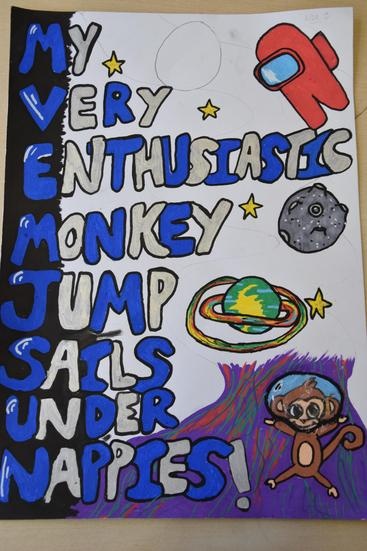 My
VERY
ENTHUSIASTIC
MONKEY
JUMP
SAILS
UNDER
NAPPIES!